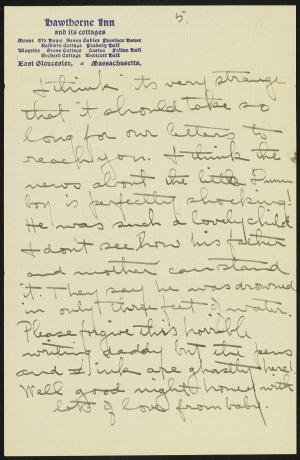 Hawthorne Inn
and its cottages
Manse Old Home Seven Gables Province House
Baldwin Cottage Peabody Hall
Wayside Grove Cottage Casino Felton Hall
Orchard Cottage Endicott Hall
East Gloucester, Massachusetts.
5.
I think it's very strange
that it should take so
long for our letters to
reach you. I think the
news about the little
boy is perfectly shocking!
He was such a lovely child
I don't see how his father
and mother can stand
it. They say he was drowned
in only three feet of water.
Please forgive this horrible
writing daddy but the pens
and ink are ghastly here!
Well good night honey with
lots of love from baby.